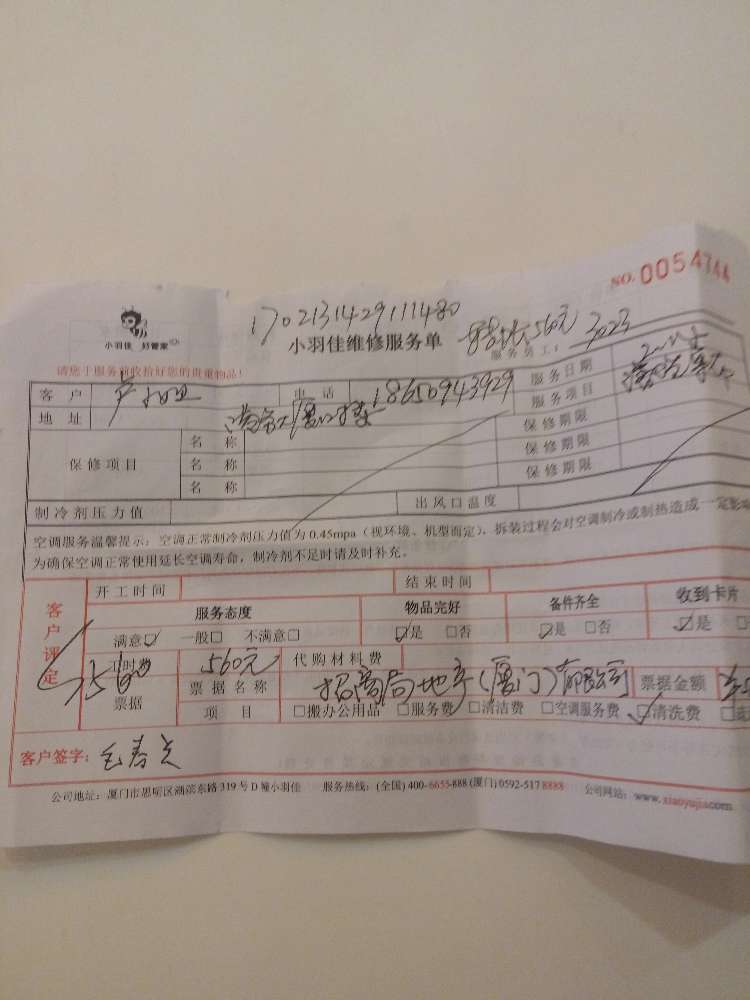 NO. 0054744
1702131429111480
小羽佳 好管家
小羽佳维修服务单
560元
服务员工: 3023
请您于服务前收拾好您的贵重物品!
客 户 电 话 18650943929 服务日期
地 址 服务项目
保修项目 名 称 保修期限
名 称 保修期限
名 称 保修期限
制冷剂压力值 出风口温度
空调服务温馨提示:空调正常制冷剂压力值为 0.45mpa(视环境、机型而定),拆装过程会对空调制冷或制热造成一定影
为确保空调正常使用延长空调寿命,制冷剂不足时请及时补充。
客户评定
开工时间 结束时间
服务态度 物品完好 备件齐全 收到卡片
满意☑ 一般□ 不满意□ ☑是 □否 ☑是 □否 ☑是
工时费 560元 代购材料费
560
票据 票据名称 招商局地产(厦门)有限公司 票据金额
项 目 □搬办公用品 □服务费 □清洁费 □空调服务费 ☑清洗费
客户签字:
公司地址:厦门市思明区湖滨东路 319 号 D 幢小羽佳 服务热线:(全国) 400-6655-888 (厦门) 0592-517 8888 公司网站:www.xiaoyujia.com